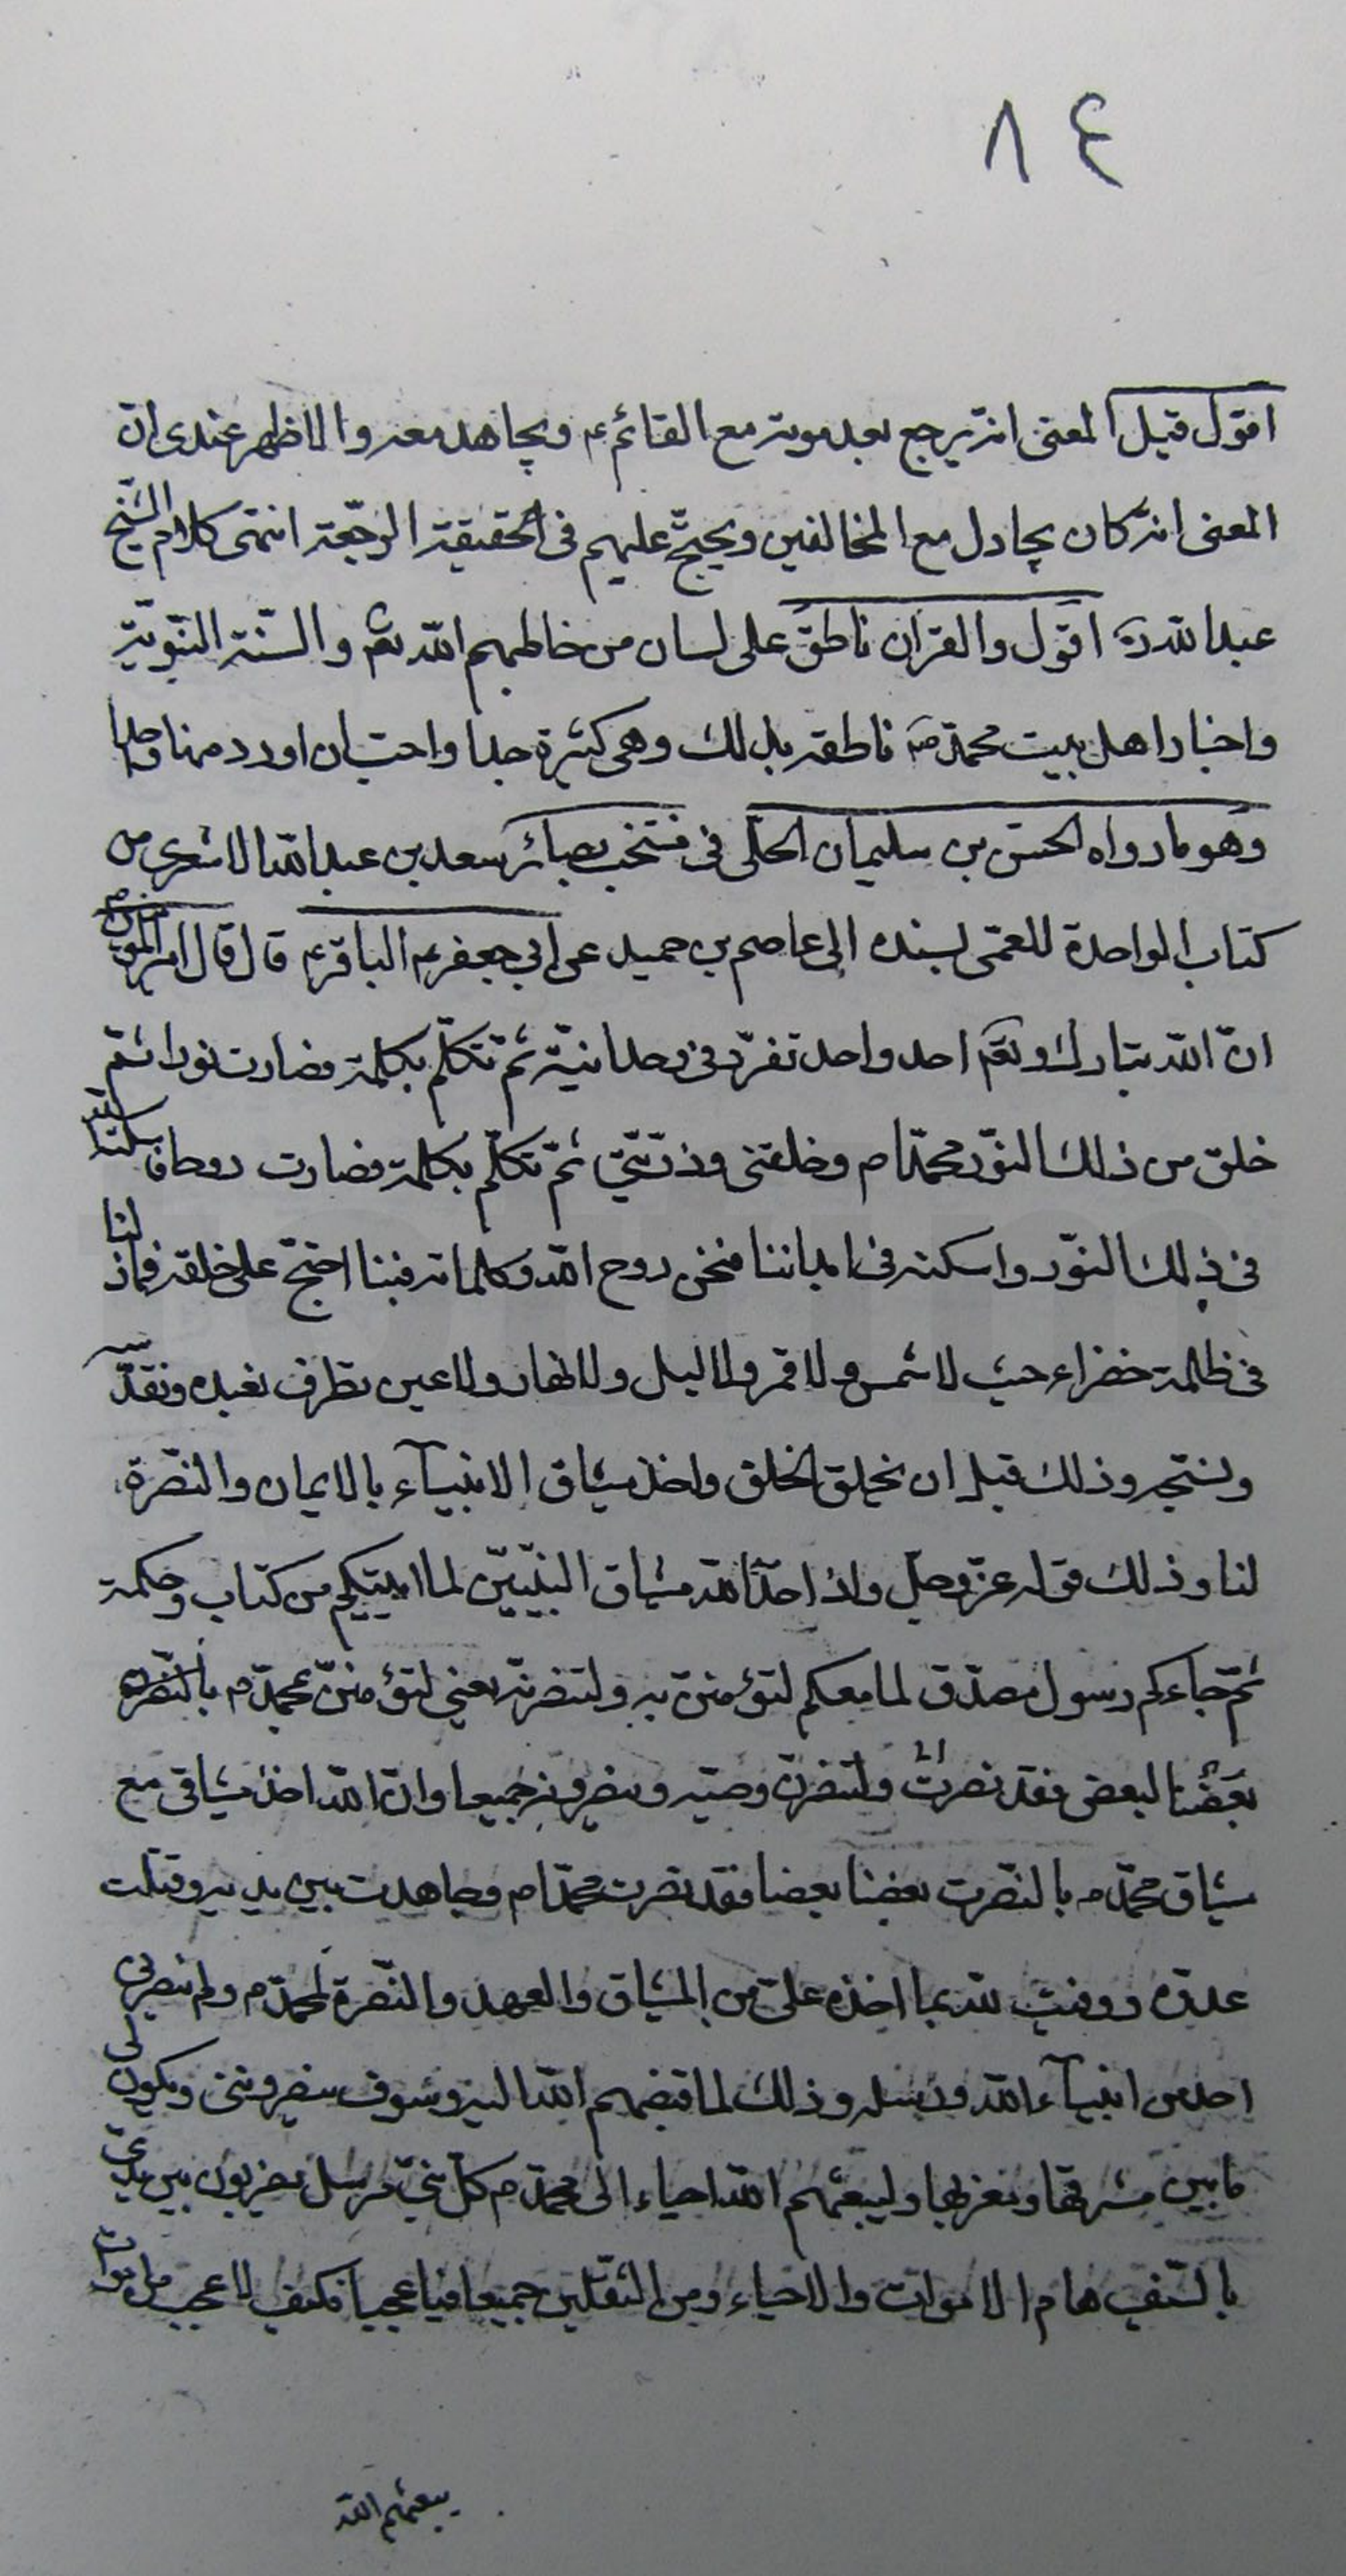 ٨٤
اقول قيل المعنى انه يرجع بعد موته مع القائم ع ويجاهد معه والاظهر عندى ان
المعنى انه كان يجادل مع المخالفين ويحتج عليهم فى الحقيقة الرجعة انتهى كلام الشيخ
عبد الله ره اقول والقران ناطق على لسان من خاطبهم الله تعم والسنة النبوية
واخبار اهل بيت محمد ص ناطقه بذلك وهى كثيرة جدا واحب ان اورد منها واحدا
وهو ما رواه الحسن بن سليمان الحلى فى منتخب بصائر سعد بن عبد الله الاشعرى من
كتاب الواحدة للعمى بسنده الى عاصم بن حميد عن ابي جعفر ع الباقر ع قال قال امير المؤمنين ع
ان الله تبارك وتعم احد واحد تفرد فى وحدانية ثم تكلم بكلمة فصارت نورا ثم
خلق من ذلك النور محمدا م وخلقنى وذريتى ثم تكلم بكلمة فصارت روحا فاسكنه الله
فى ذلك النور واسكنه فى ابداننا فنحن روح الله وكلماته فبنا احتج على خلقه فما زلنا
فى ظلمة خضراء حيث لا شمس ولا قمر ولا ليل ولا نهار ولا عين تطرف نعبده ونقدسه
ونسبحه وذلك قبل ان يخلق الخلق واخذ ميثاق الانبياء بالايمان والنصرة
لنا وذلك قوله عز وجل واذ اخذ الله ميثاق النبيين لما اتيتكم من كتاب وحكمة
ثم جاءكم رسول مصدق لما معكم لتؤمنن به ولتنصرنه يعنى لتؤمنن بمحمد م بالنصره
بعضنا لبعض فقد نصرت ولتنصرن وصيه وينصرونه جميعا وان الله اخذ ميثاقى مع
ميثاق محمد م بالنصرت بعضنا بعضا فقد نصرت محمدا م وجاهدت بين يديه وقتلت
عدوه ووفيت لله بما اخذه على من الميثاق والعهد والنصرة لمحمد م ولم ينصرنى
احد من انبياء الله ورسله وذلك لما قبضهم الله اليه وسوف ينصروننى ويكون لى
ما بين مشرقها ومغربها وليبعثهم الله احياء الى محمد م كل نبى مرسل يضربون بين يدى
بالسيف هام الاموات والاحياء ومن الثقلين جميعا فيا عجبا فكيف لا عجب من اموات
يبعثهم الله